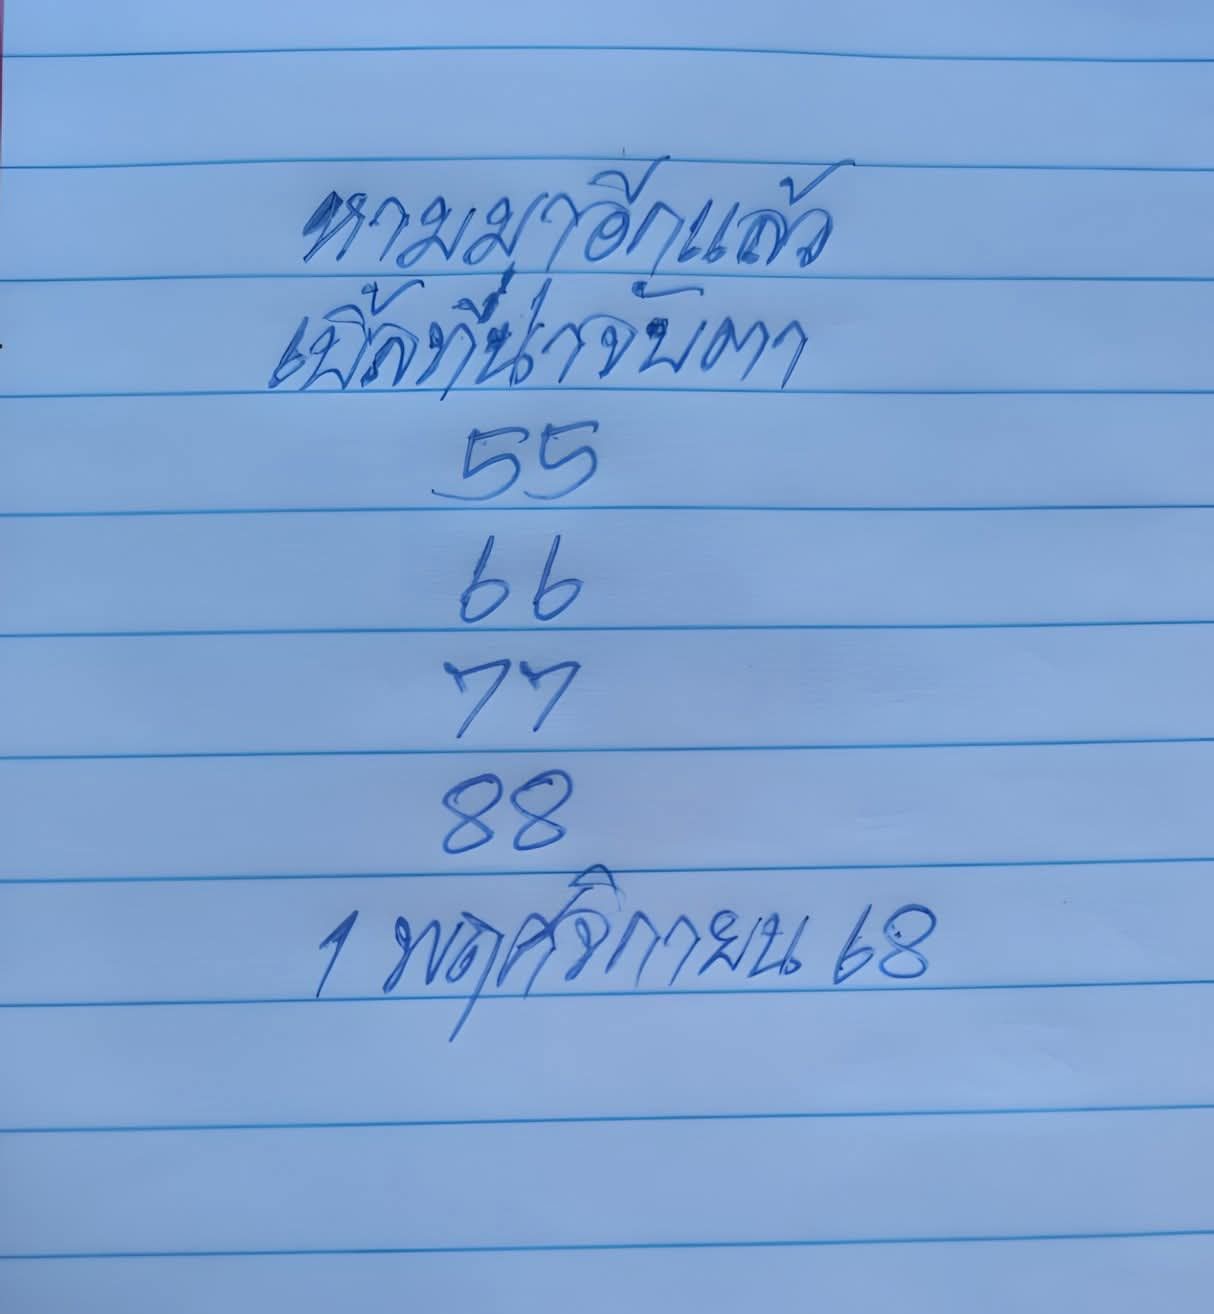 หามมาอีกแล้ว
เบิ้ลที่น่าจับตา
55
66
77
88
1 พฤศจิกายน 68